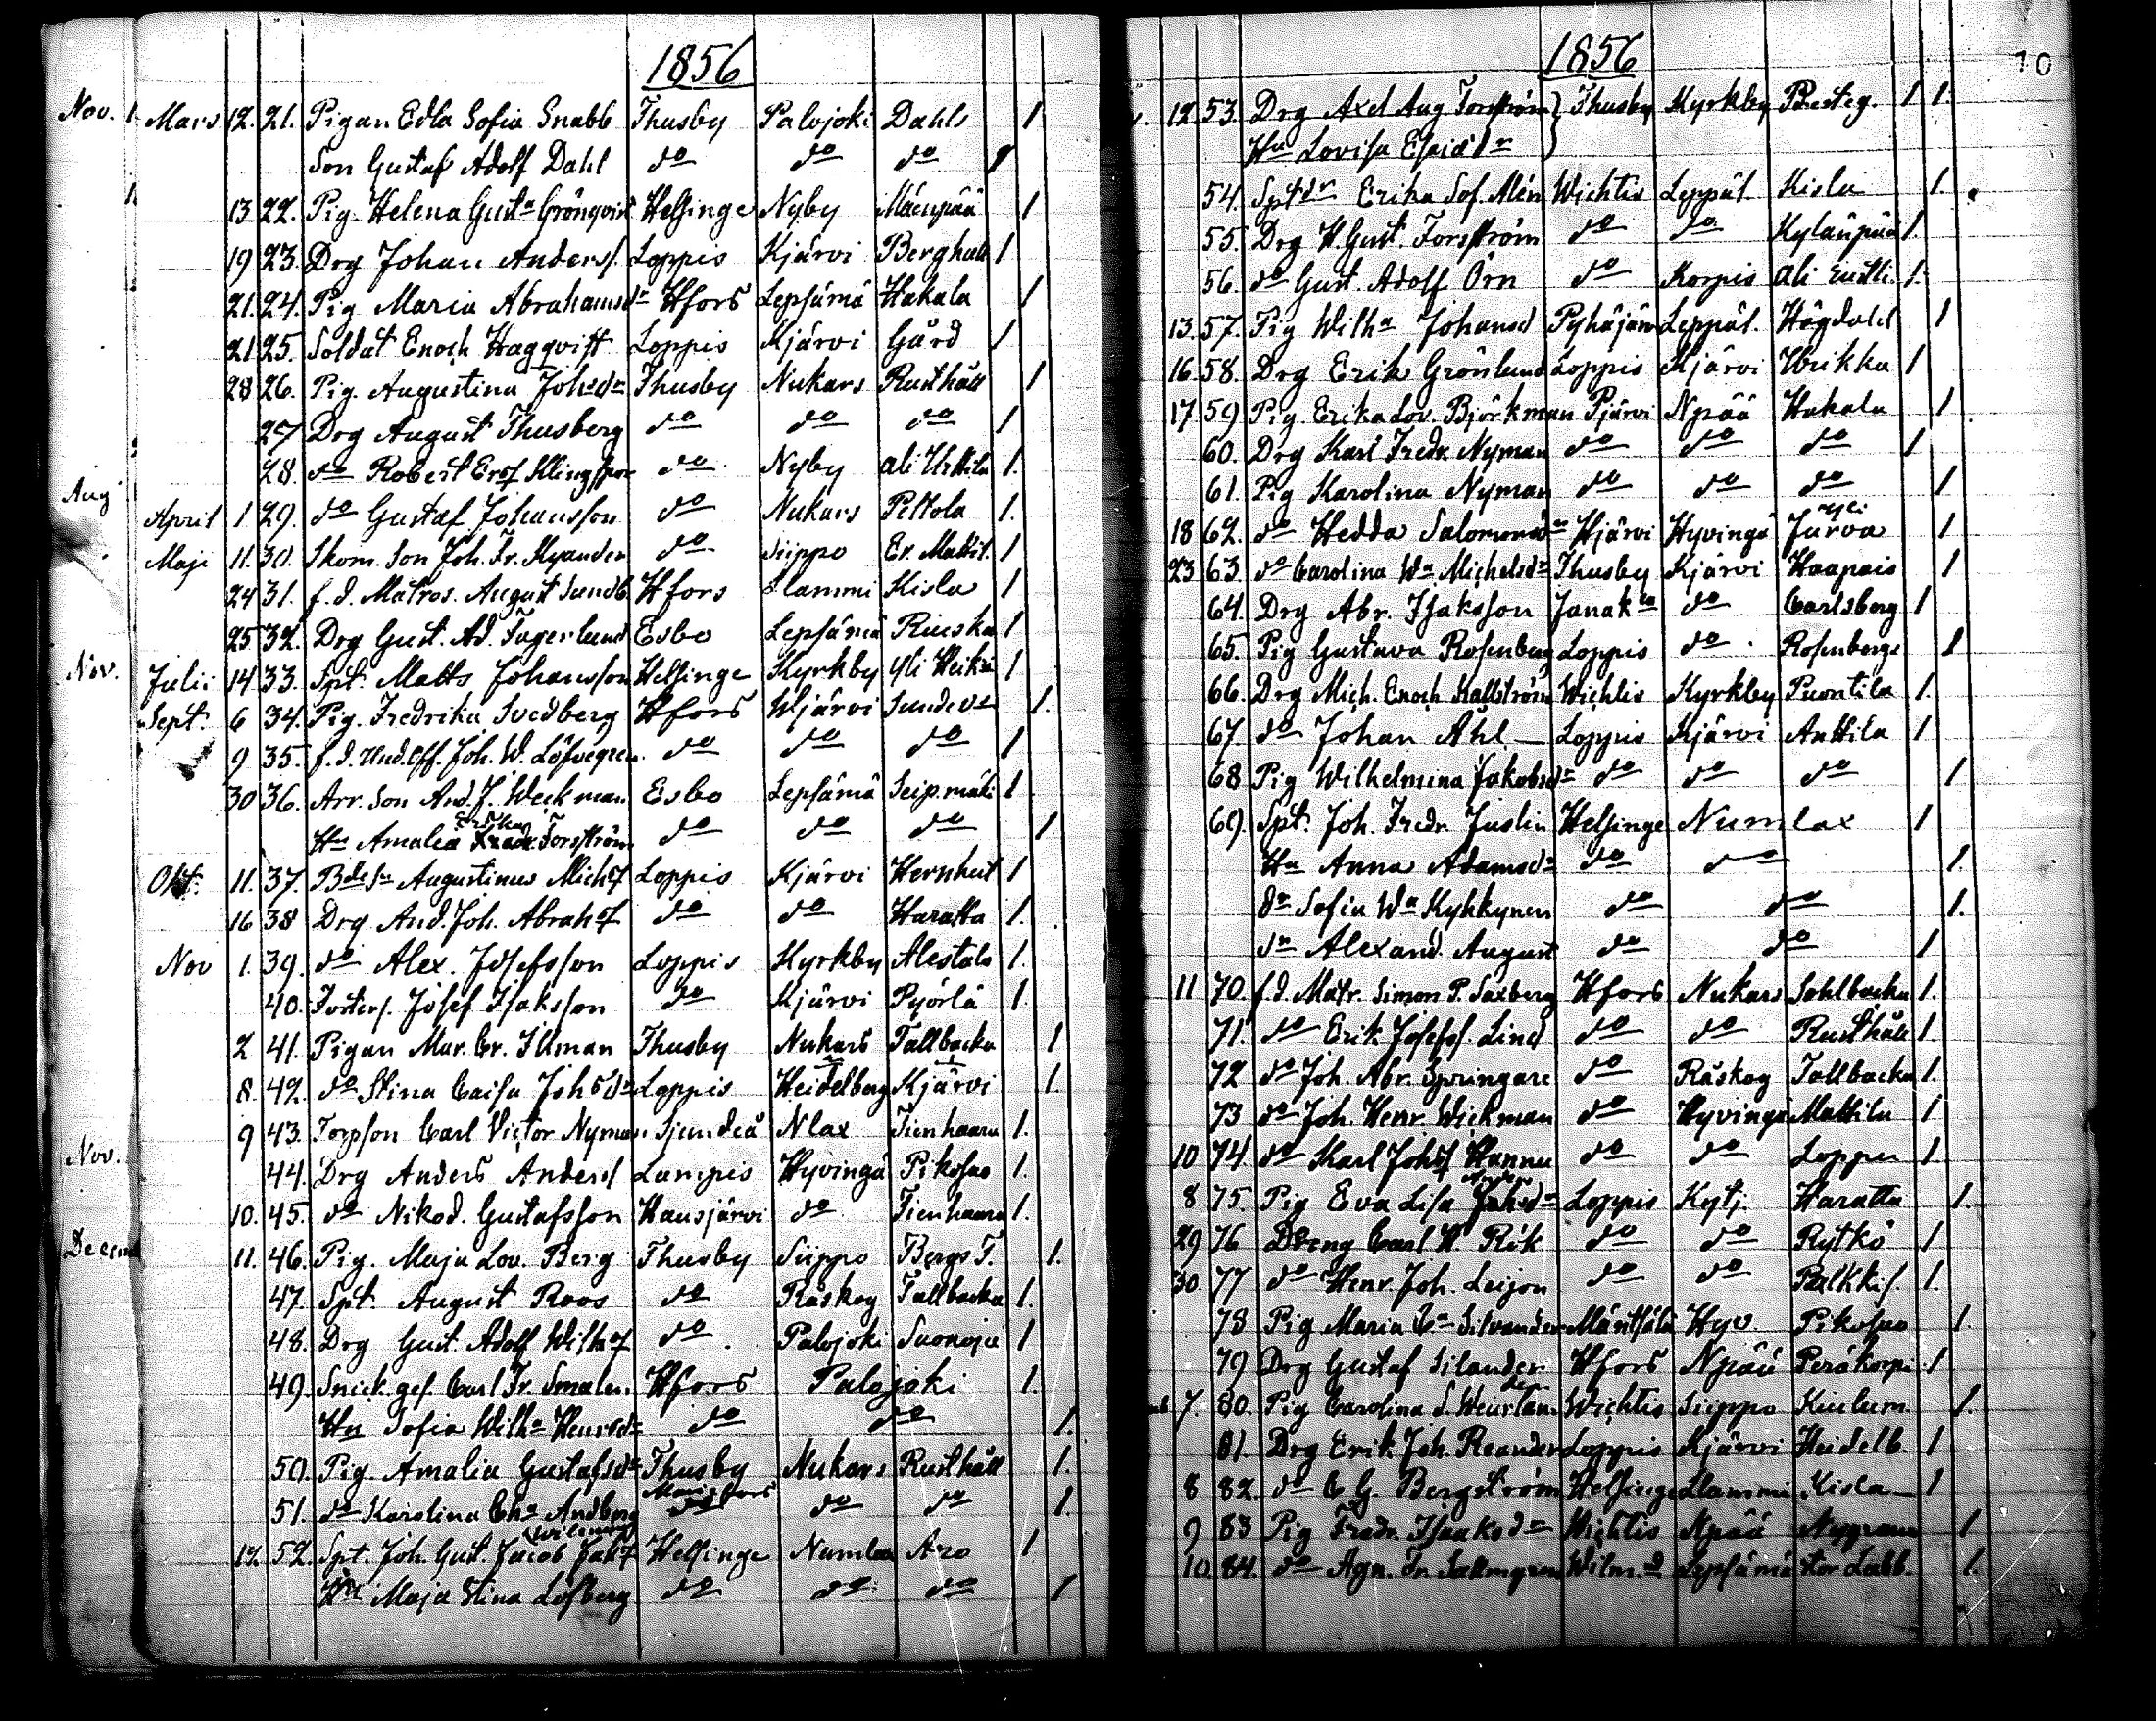 1856
Nov. 1. Mars 12. 21. Pigan Edla Sofia Snabb Thusby Palojoki Dahls 1
Son Gustaf Adolf Dahl do do do 1
13 22. Pig. Helena Gust:a Grönqvist Helsinge Nyby Mäenpää 1
19 23. Drg Johan Anders. Loppis Kjärvi Berghäll 1
21. 24. Pig Maria Abrahamsdr Hfors Lepsämä Hakala 1
21 25. Soldat Enoch Haggvist Loppis Kjärvi Gård 1
28 26. Pig. Augustina Johsdr Thusby Nukars Rusthåll 1
27 Drg August Thusberg do do do 1
28. do Robert Ersf Klingspor do Nyby ali Uttila 1.
Aug
April 1 29. do Gustaf Johansson do Nukars Peltola 1.
Maji 11. 30. Skom. Son Joh. Fr. Kyander do Siippo Er. Mattil. 1
24 31. f.d. Matros. August Sundb. Hfors Klammi Kisla 1
25 32. Drg Gust. Ad. Fagerlund Esbo Lepsämä Ruuska 1
Nov. Julii 14 33. Spt. Matts Johansson Helsinge Kyrkby Yli Heikk 1
Sept. 6 34. Pig. Fredrika Svedberg Hfors Hjärvi 1.
9 35. f.d. Und.Off. Joh. W. Löfvegren do do do 1
30 36. Arr. Son And. J. Weckman Esbo Lepsämä 1
Erika
Hu Amalia Fredr. Forsström do do do 1
Okt. 11. 37. Augustinus Michsf Loppis Kjärvi Hernhut 1
16 38 Drg And. Joh. Abrahsf do do Haratta 1.
Nov 1. 39. do Alex. Josefsson Loppis Kyrkby Alestalo 1.
40. Fosters. Josef Isaksson do Kjärvi Pyörlä 1.
2 41. Pigan Mar. Cr. Illman Thusby Nukars Tallbacka 1
8. 42. do Stina Caisa Johsdr Loppis Heidelberg Kjärvi 1.
9 43. Torpson Carl Victor Nyman Sjundeå Nlax Tienhaara 1.
Nov. 44. Drg Anders Andersf Lampis Hyvinge Pikosuo 1.
10. 45. do Nikod. Gustafsson Hausjärvi do Tienhaara 1.
Decem 11. 46. Pig. Maja Lov. Berg Thusby Siippo Bergs T. 1.
47. Spt. August Roos do Råskog Tallbacka 1.
48. Drg Gust. Adolf Wilhsf do Palojoki Suonoja 1
49. Snick.ges. Carl Fr. Smalen. Hfors Palojoki 1.
Hu Sofia Wilh:a Henrsdr do do 1.
50. Pig. Amalia Gustafsdr Thusby Nukars Rusthåll 1.
51. do Karolina Ch:a Andberg do do do 1.
12. 52. Spt. Joh. Gust. Jacob Jaksf Helsinge Numlax Aro 1
Hu Maja Stina Löfberg do do do 1
1856
10
12. 53. Drg Axel Aug Forsström } Thusby Kyrkby Presteg. 1 1.
Hu Lovisa Esaiædr
54. Sptdr Erika Sof. Alén Wichtis Leppäl. Kisla 1.
55. Drg H. Gust. Forsström do do Kylänpää 1.
56. do Gust. Adolf Örn do Korpis 1.
13. 57. Pig Wilh:a Johansd Pyhäjärvi Leppäl. Högdahl 1
16. 58. Drg Erik Grönlund Loppis Kjärvi Ubrikka 1
17. 59. Pig. Erika Lov. Björkman Pjärvi Npää Hakala 1.
60. Drg Karl Fredr. Nyman do do do 1
61. Pig Karolina Nyman do do do 1
18 62. do Hedda Salomonsdr Hjärvi Hyvinge Yli Jurva 1
23 63. do Carolina W:a Michelsdr Thusby Kjärvi Haapais 1
64. Drg Abr. Isaksson Janak:la do Carlsberg 1
65. Pig Gustava Rosenberg Loppis do Rosenbergs 1
66. Drg Mich. Enoch Kallström Wichtis Kyrkby Puontila 1.
67. do Johan Ahl Loppis Kjärvi Anttila 1
68 Pig Wilhelmina Jakobsdr do do do 1
69. Spt. Joh. Fredr. Juslin Helsinge Numlax 1
Hu Anna Adamsdr do do 1.
dr Sofia W:a Kykkynen do do 1.
sn Alexand. August do do 1
11 70. f.d. Matr. Simon P. Saxberg Hfors Nukars Sahlbacka 1.
71. do Erik Josefsf. Lind do do Rusthåll 1.
72 do Joh. Abr. Springare do Råskog Tallbacka 1.
73 do Joh. Henr. Wickman do Hyvinge Mattila 1
10 74. do Karl Johsf Hannu do do Loppen 1.
8 75. Pig Eva Lisa Loppis Kytj. Haratta 1.
29 76 Dreng Carl H. Rök do do Rytkö 1
30. 77 do Henr. Joh. Leijon do do Palkkis. 1.
78 Pig Maria Silvander Mäntsälä Hyv. Pikosuo 1.
79 Drg Gustaf Silander Hfors Npää Peräkorpi 1
7. 80. Pig Carolina S. Wichtis Siippo 1.
81. Drg Erik Joh. Reander Loppis Kjärvi Heidelb. 1
8 82. do C G. Bergström Helsinge Klammi Kisla 1
9 83 Pig Fredr. Isaaksdr Wichtis Npää Nygrans 1
10 84. do Agn. Fr. Sallmgren Lepsämä Stor Labb. 1.